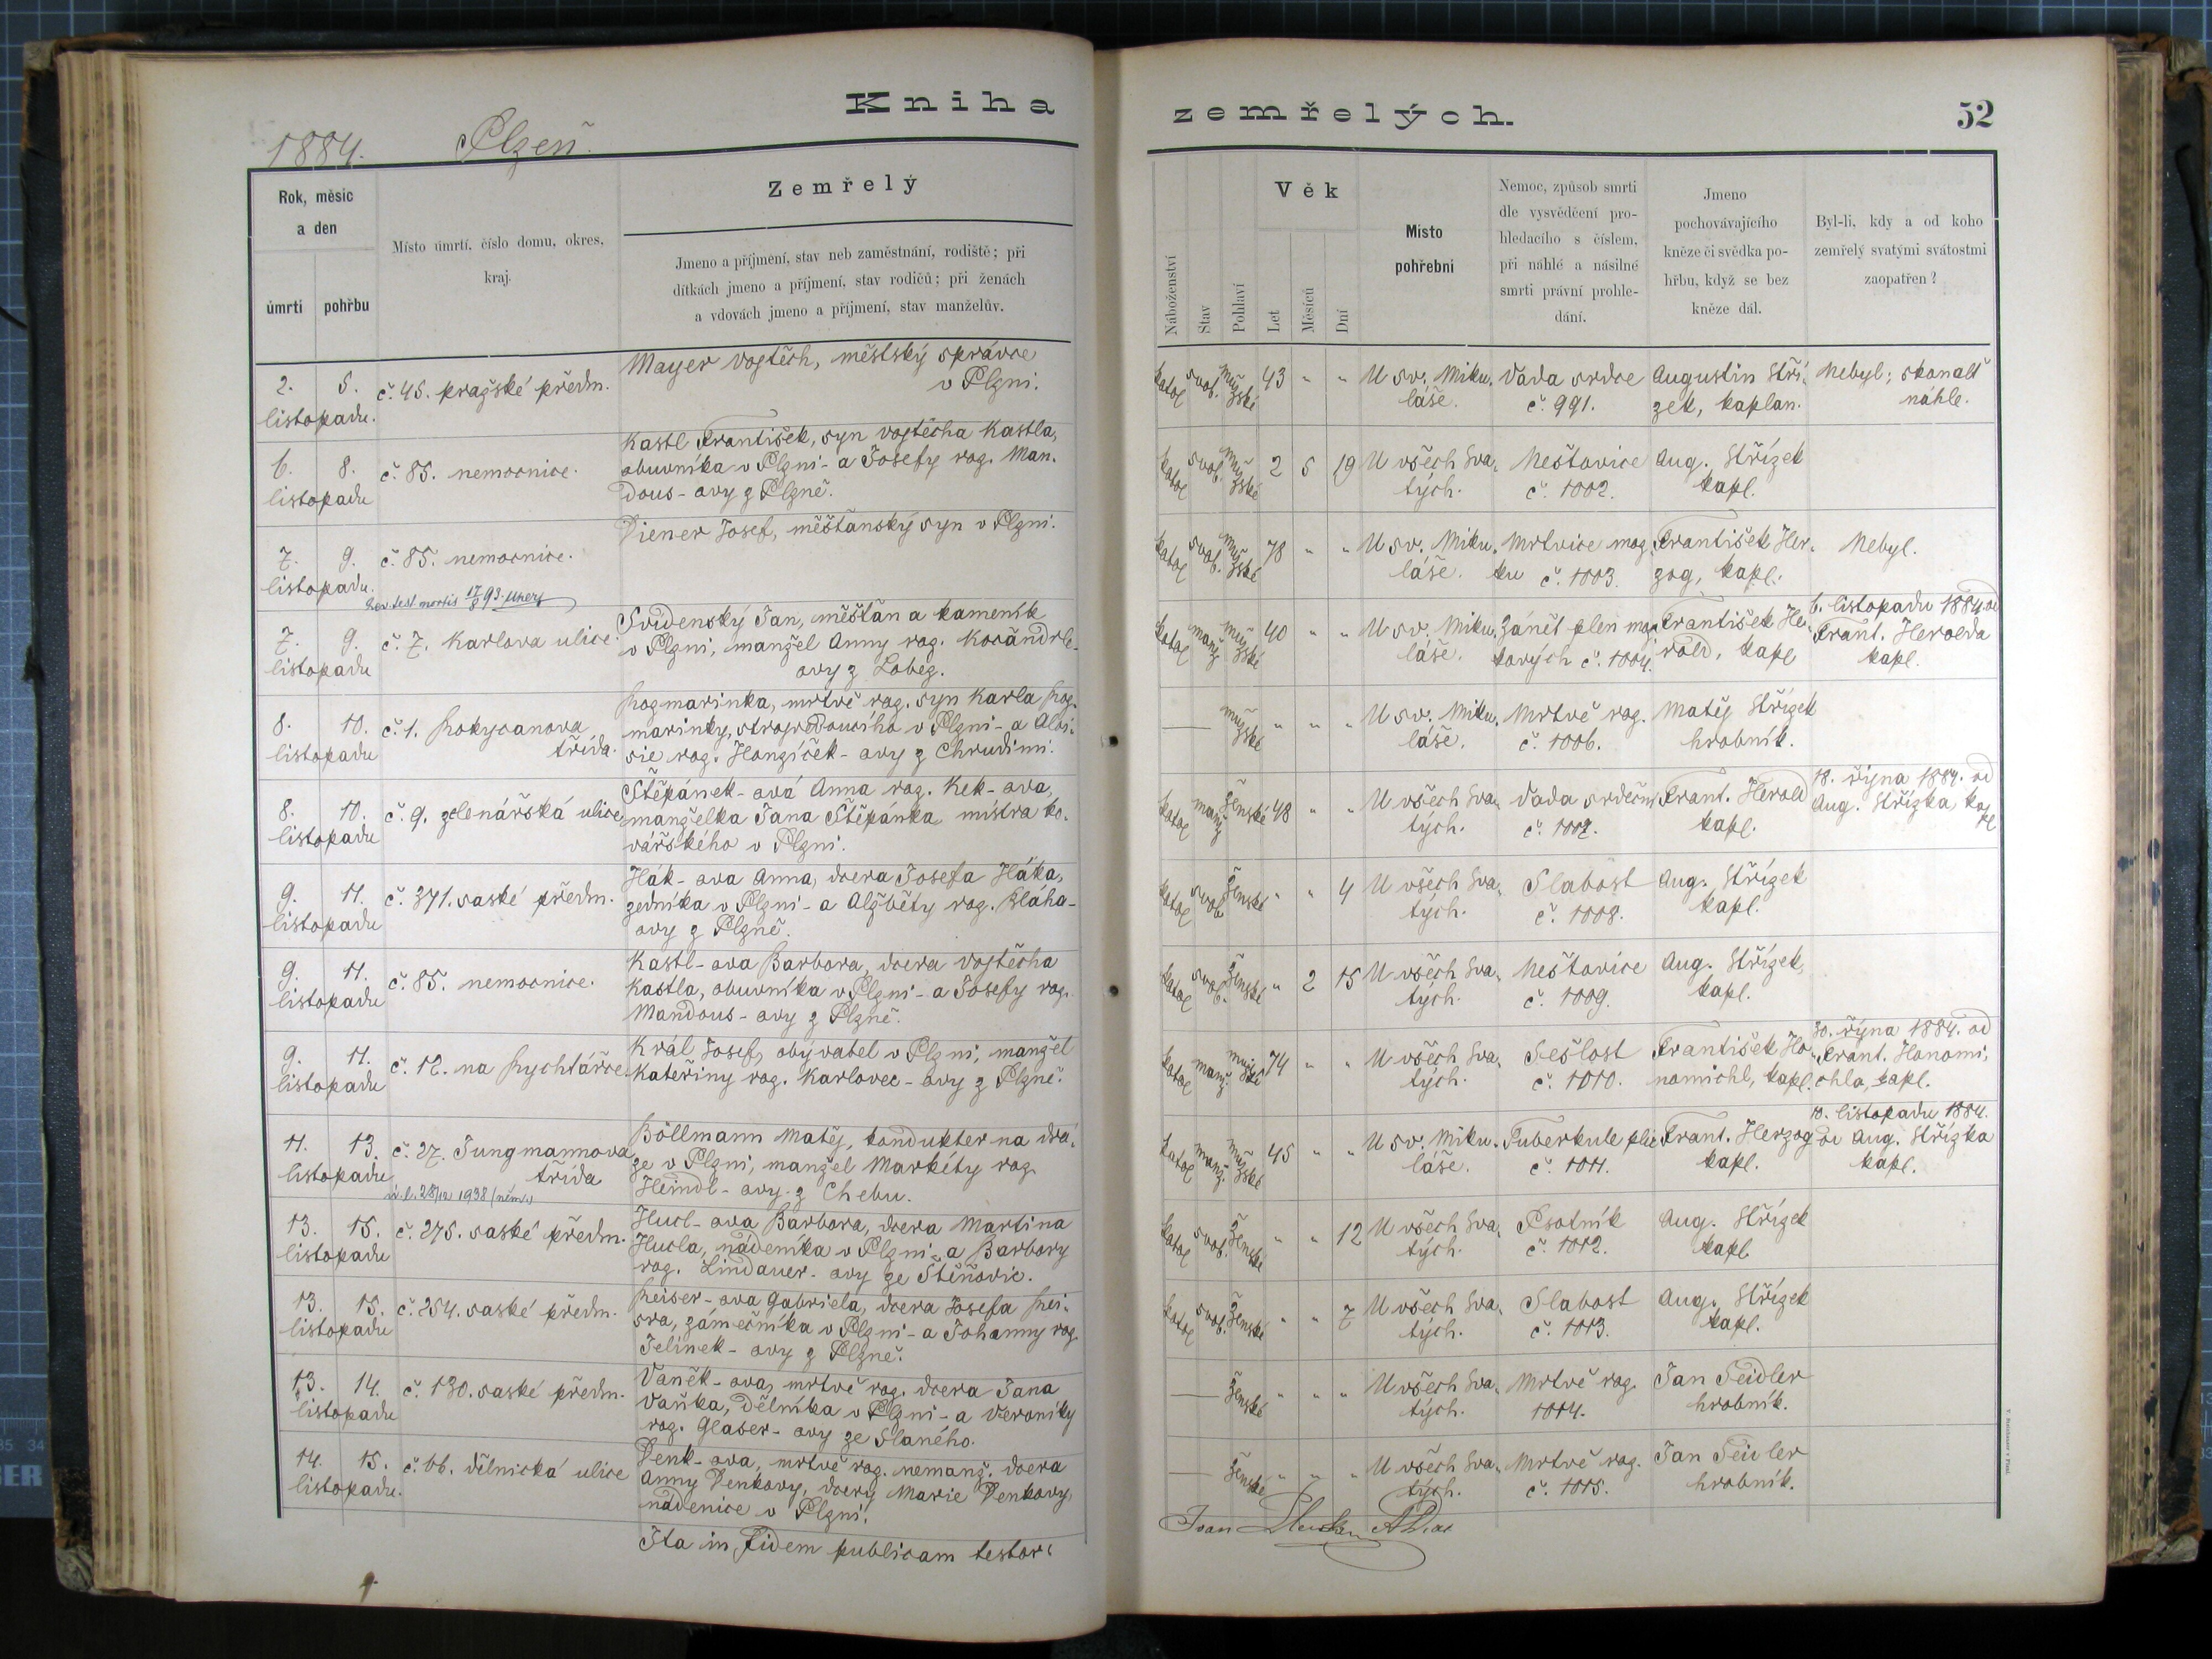 Kniha
zemřelých.
52
1884.
Plzeň.
Rok, měsíc
a den
úmrtí
pohřbu
Místo úmrtí. číslo domu, okres,
kraj.
Zemřelý
Jmeno a příjmení, stav neb zaměstnání, rodiště; při
dítkách jmeno a příjmení, stav rodičů; při ženách
a vdovách jmeno a příjmení, stav manželův.
Náboženství
Stav
Pohlaví
Věk
Let
Měsíců
Dní
Místo
pohřební
Nemoc, způsob smrti
dle vysvědčení pro-
hledacího s číslem,
při náhlé a násilné
smrti právní prohle-
dání.
Jmeno
pochovávajícího
kněze či svědka po-
hřbu, když se bez
kněze dál.
Byl-li, kdy a od koho
zemřelý svatými svátostmi
zaopatřen?
2. 5.
listopadu.
č. 45. pražské předm.
Mayer Vojtěch, městský správce
v Plzni.
katol svob. mužské 43 " "
U sv. Miku-
láše.
Vada srdce
č. 991.
Augustin Stří-
zek, kaplan.
Nebyl; skonalť
náhle.
6. 8.
listopadu
č. 85. nemocnice.
Kastl František, syn Vojtěcha Kastla,
obuvníka v Plzni - a Josefy roz. Man-
dous - ovy z Plzně.
katol svob. mužské 2 5 19
U všech Sva-
tých.
Neštovice
č. 1002.
Aug. Střízek
kapl.
7. 9.
listopadu.
č. 85. nemocnice.
Diener Josef, měšťanský syn v Plzni.
katol svob. mužské 78 " "
U sv. Miku-
láše.
Mrtvice moz-
ku č. 1003.
František Her-
zog, kapl.
Nebyl.
test mortis 17/8 93.
7. 9.
listopadu
č. 7. Karlova ulice.
Svidenský Jan, měšťan a kameník
v Plzni, manžel Anny roz. Korandrle-
ovy z Lobez.
katol manž mužské 40 " "
U sv. Miku-
láše.
Zánět plen moz-
kových č. 1004.
František He-
rold, kapl
6. listopadu 1884. od
Frant. Herolda
kapl.
8. 10.
listopadu
č. 1. Rokycanova
třída.
Rozmarinka, mrtvě roz. syn Karla Roz-
marinky, strojvedoucího v Plzni - a Aloi-
sie roz. Honzíček - ovy z Chrudimi.
— mužské " " "
U sv. Miku-
láše.
Mrtvě roz.
č. 1006.
Matěj Střízek
hrobník.
8. 10.
listopadu
č. 9. zelenářská ulice
Štěpánek - ová Anna roz. Kek - ova,
manželka Jana Štěpánka, mistra ko-
vářského v Plzni.
katol manž ženské 48 " "
U všech Sva-
tých.
Vada srdeční
č. 1007.
Frant. Herold
kapl.
18. října 1884. od
Aug. Střízka, kapl
9. 11.
listopadu
č. 371. saské předm.
Hák - ova Anna, dcera Josefa Háka,
zedníka v Plzni - a Alžběty roz. Bláho-
ovy z Plzně.
katol svob ženské " " 4
U všech Sva-
tých.
Slabost
č. 1008.
Aug. Střízek
kapl.
9. 11.
listopadu
č. 85. nemocnice.
Kastl - ova Barbora, dcera Vojtěcha
Kastla, obuvníka v Plzni - a Josefy roz.
Mandous - ovy z Plzně.
katol svob. ženské " 2 15
U všech Sva-
tých.
Neštovice
č. 1009.
Aug. Střízek,
kapl.
9. 11.
listopadu
č. 12. na Rychtářce
Král Josef, obývatel v Plzni, manžel
Kateřiny roz. Karlovec - ovy z Plzně.
katol manž. mužské 74 " "
U všech Sva-
tých.
Sešlost
č. 1010.
František Ho-
nomichl, kapl.
30. října 1884. od
Frant. Honomi-
chla, kapl.
11. 13.
listopadu
č. 27. Jungmannova
třída
Böllmann Matěj, kondukter na drá-
ze v Plzni, manžel Markéty roz.
Heindl - ovy z Chebu.
katol manž. mužské 45 " "
U sv. Miku-
láše.
Tuberkule plic
č. 1011.
Frant. Herzog
kapl.
10. listopadu 1884.
od Aug. Střízka
kapl.
ú. l. 28/12 1938 (něm.)
13. 15.
listopadu
č. 275. saské předm.
Hucl - ova Barbora, dcera Martina
Hucla, nádeníka v Plzni - a Barbory
roz. Lindauer - ovy ze Štěňovic.
katol svob. ženské " " 12
U všech Sva-
tých.
Psotník
č. 1012.
Aug. Střízek
kapl
13. 15.
listopadu
č. 254. saské předm.
Reiser - ova Gabriela, dcera Josefa Rei-
sra, zámečníka v Plzni - a Johanny roz.
Jelínek - ovy z Plzně.
katol svob. ženské " " 7
U všech Sva-
tých.
Slabost
č. 1013.
Aug. Střízek
kapl.
13. 14.
listopadu
č. 130. saské předm.
Vaněk - ova, mrtvě roz. dcera Jana
Vaňka, dělníka v Plzni - a Veroniky
roz. Glaser - ovy ze Slaného.
— ženské " " "
U všech Sva-
tých.
Mrtvě roz.
1014.
Jan Seidler
hrobník.
14. 15.
listopadu.
č. 66. dělnická ulice
Denk - ova, mrtvě roz. nemanž. dcera
Anny Denkovy, dcery Marie Denkovy,
nádenice v Plzni.
— ženské " " "
U všech Sva-
tých.
Mrtvě roz.
č. 1015.
Jan Seidler
hrobník.
Ita in fidem publicam testor: